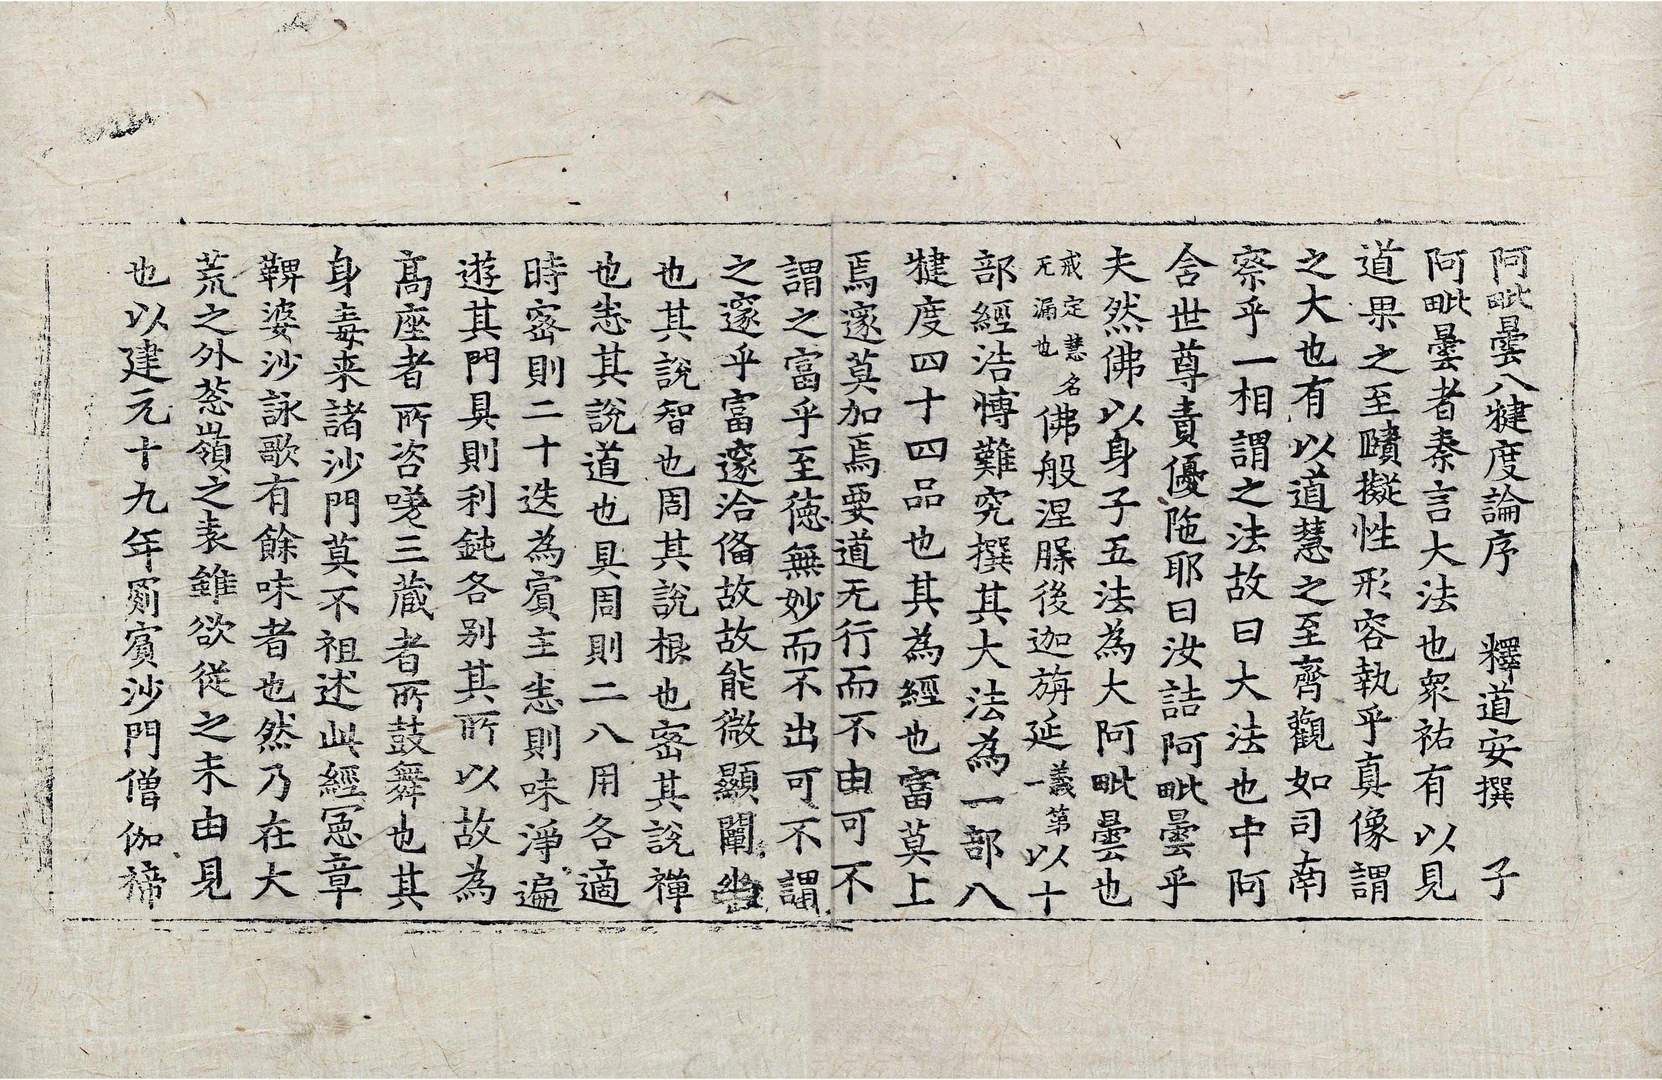 阿毗曇八犍度論序 釋道安撰 子
阿毗曇者秦言大法也衆祐有以見
道果之至賾擬性形容執乎真像謂
之大也有以道慧之至齊觀如司南
察乎一相謂之法故曰大法也中阿
含世尊責優陁耶曰汝詰阿毗曇乎
夫然佛以身子五法為大阿毗曇也
戒定慧名无漏也佛般涅脲後迦旃延義第一以十
部經浩博難究撰其大法為一部八
犍度四十四品也其為經也富莫上
焉邃莫加焉要道无行而不由可不
謂之富乎至德無妙而不出可不謂
之邃乎富邃洽俻故故能微顯闡幽
也其說智也周其說根也密其說禪
也悉其說道也具周則二八用各適
時密則二十迭為賓主悉則味淨遍
遊其門具則利鈍各別其所以故為
高座者所咨嗟三蔵者所鼓舞也其
身毒来諸沙門莫不祖述此經憲章
鞞婆沙詠歌有餘味者也然乃在大
荒之外葱嶺之表雖欲従之末由見
也以建元十九年罽賓沙門僧伽禘